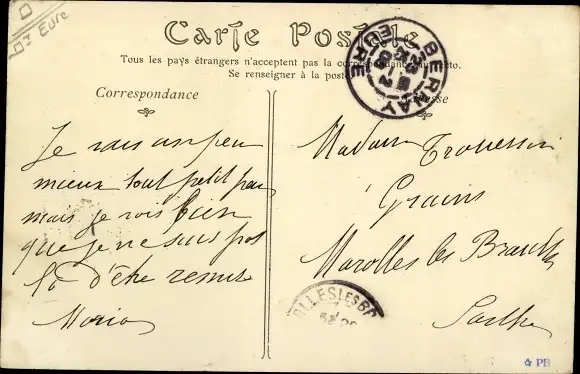 Eure
Carte Postale
Tous les pays étrangers n'acceptent pas la correspondance au recto.
Se renseigner à la poste
Correspondance
BERNAY
EURE
Je vais un peu
mieux tout petit peu
mais je vois bien
que je ne suis pas
là d'être remise
Maria
Madame
Grains
Marolles les
Sarthe
OLLES LES BR
PB